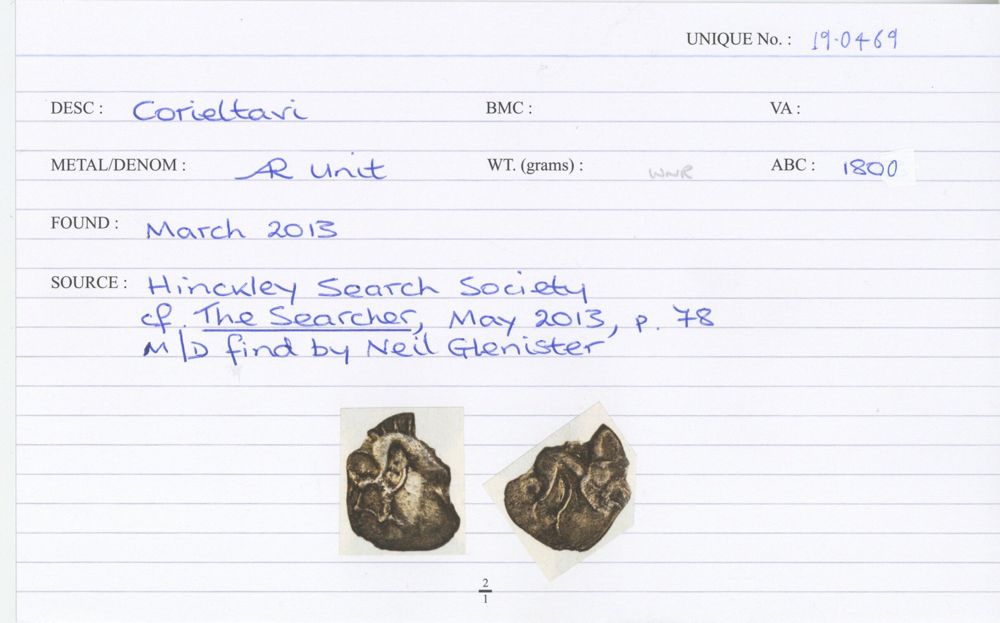 UNIQUE No. : 19.0469
DESC : Corieltavi BMC : VA :
METAL/DENOM : AR Unit WT. (grams) : WNR ABC : 1800
FOUND : March 2013
SOURCE : Hinckley Search Society
cf. The Searcher, May 2013, p. 78
M/D find by Neil Glenister
2
1